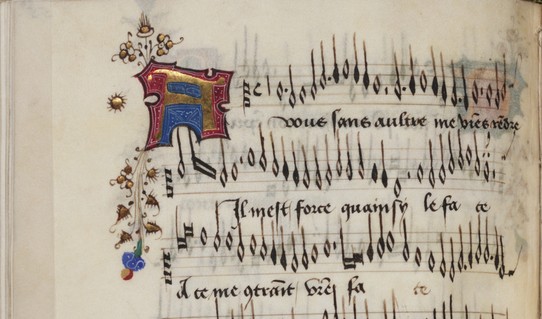 A vous sans aultre me viẽs rẽdre
Il mest force quainsy le fa ce
A ce me 9traĩt vr̃e fa ce